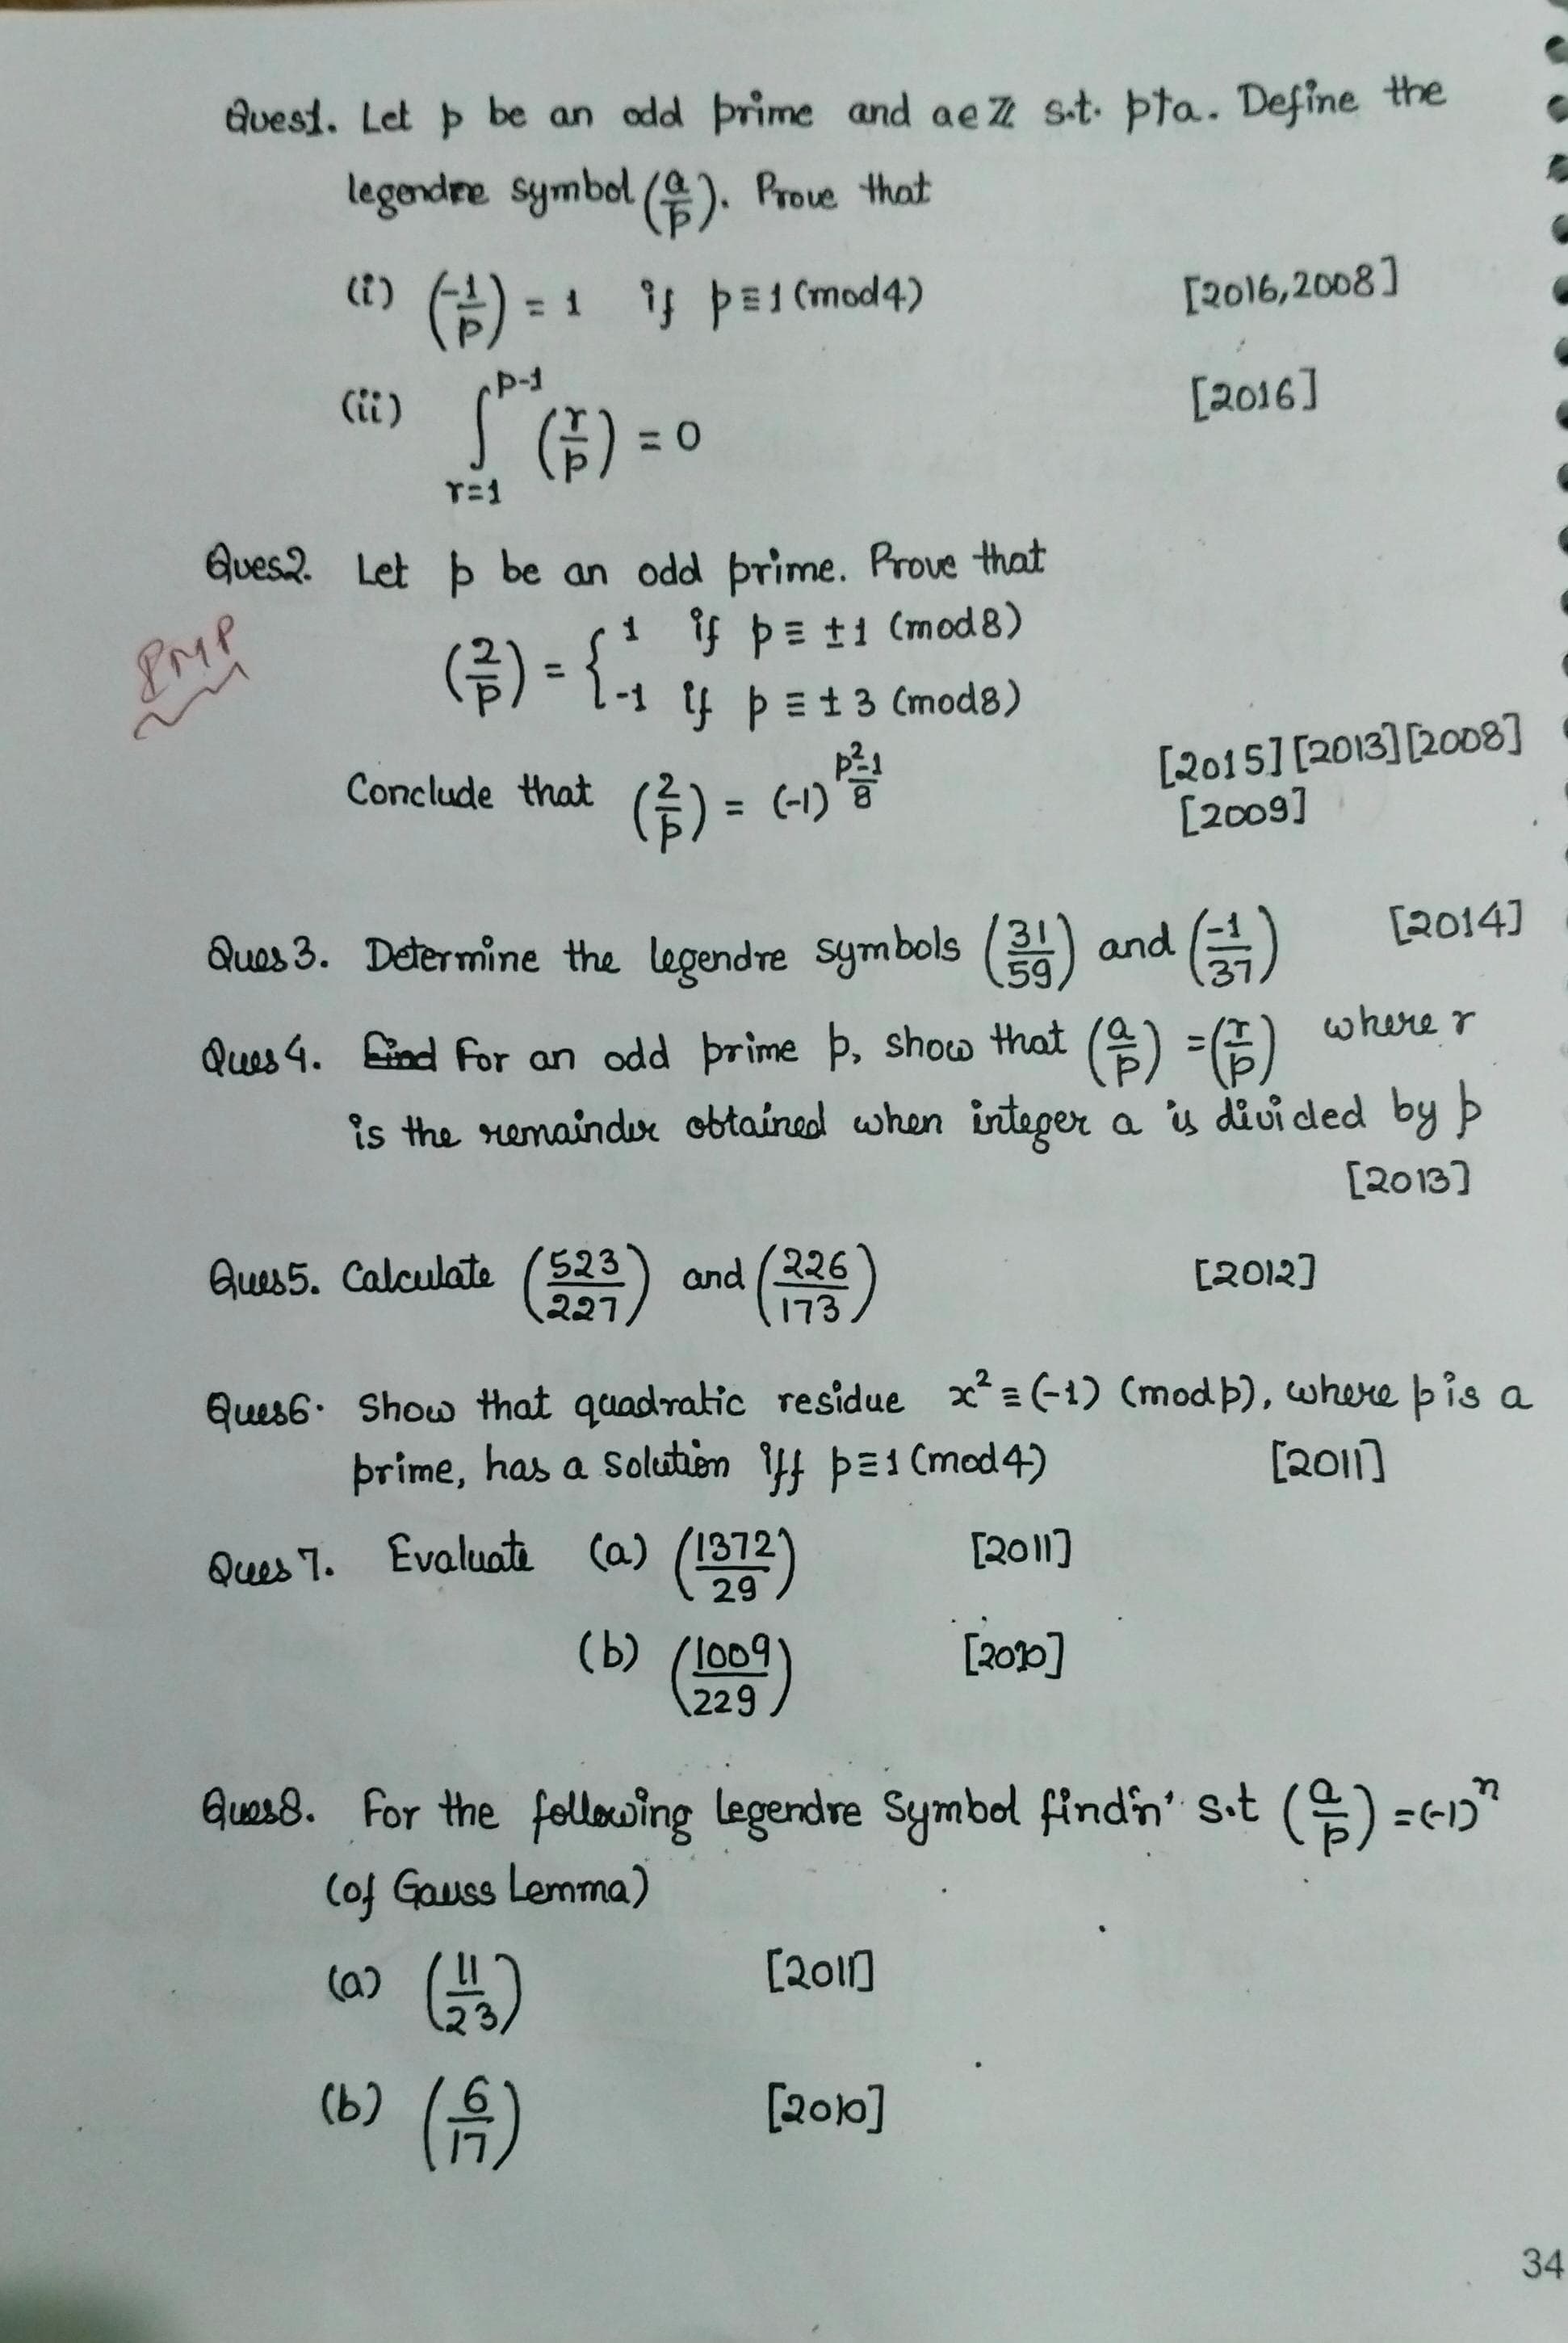 Ques1. Let p be an odd prime and a∈ℤ s.t. p∤a. Define the
legendre symbol (a/p). Prove that
(i) (-1/p) = 1 if p≡1 (mod4) [2016,2008]
(ii) ∫_{r=1}^{p-1} (r/p) = 0 [2016]
Ques2. Let p be an odd prime. Prove that
PMP
(2/p) = { 1 if p≡ ±1 (mod8)
-1 if p≡ ±3 (mod8)
Conclude that (2/p) = (-1)^{(p²-1)/8} [2015][2013][2008]
[2009]
Ques3. Determine the legendre symbols (31/59) and (-1/37) [2014]
Ques4. ~~Find~~ For an odd prime p, show that (a/p) = (r/p) where r
is the remainder obtained when integer a is divided by p
[2013]
Ques5. Calculate (523/227) and (226/173) [2012]
Ques6. Show that quadratic residue x²≡(-1) (modp), where p is a
prime, has a solution iff p≡1 (mod4) [2011]
Ques7. Evaluate (a) (1372/29) [2011]
(b) (1009/229) [2010]
Ques8. For the following legendre Symbol find'n' s.t (a/p) = (-1)ⁿ
(of Gauss Lemma)
(a) (11/23) [2011]
(b) (6/17) [2010]
34